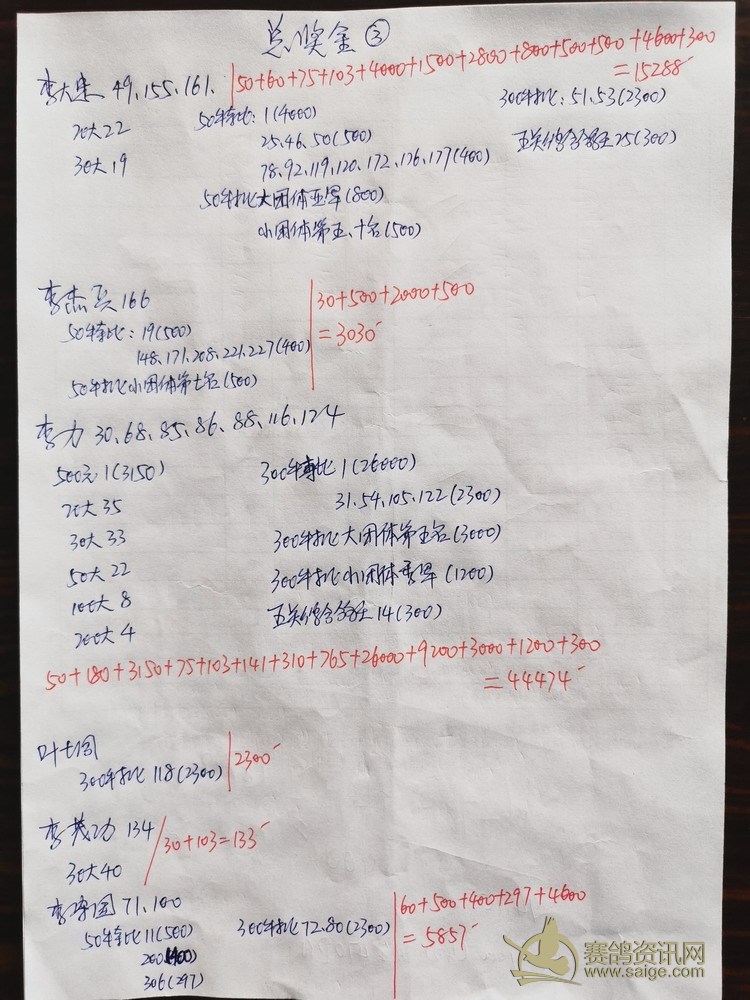 总奖金③
李大忠 49、155、161.
50+60+75+103+4000+1500+2800+800+500+500+4600+300
=15288
20大22 50年特比:1(4000) 300年特比:51、53(2300)
30大19 25、46、50(500) 五关综合鸽王25(300)
78、92、119、120、172、176、177(400)
50年特比大团体亚军(800)
小团体第五、十名(500)
李杰兵 166
30+500+2000+500
=3030
50年特比:19(500)
148、171、208、221、227(400)
50年特比小团体第七名(500)
李力 30、68、85、86、88、116、124
500元1(3150) 300年特比1(26000)
20大35 31、54、105、122(2300)
30大33 300年特比大团体第五名(3000)
50大22 300年特比小团体季军(1200)
100大8 五关综合鸽王14(300)
200大4
50+180+3150+75+103+141+310+765+26000+9200+3000+1200+300
=44474
300年特比118(2300) 2300
李茂功 134 30+103=133
30大40
71、100
60+500+400+297+4600
=5857
50年特比11(500) 300年特比72、80(2300)
200(400)
306(297)
赛鸽资讯网
www.saige.com